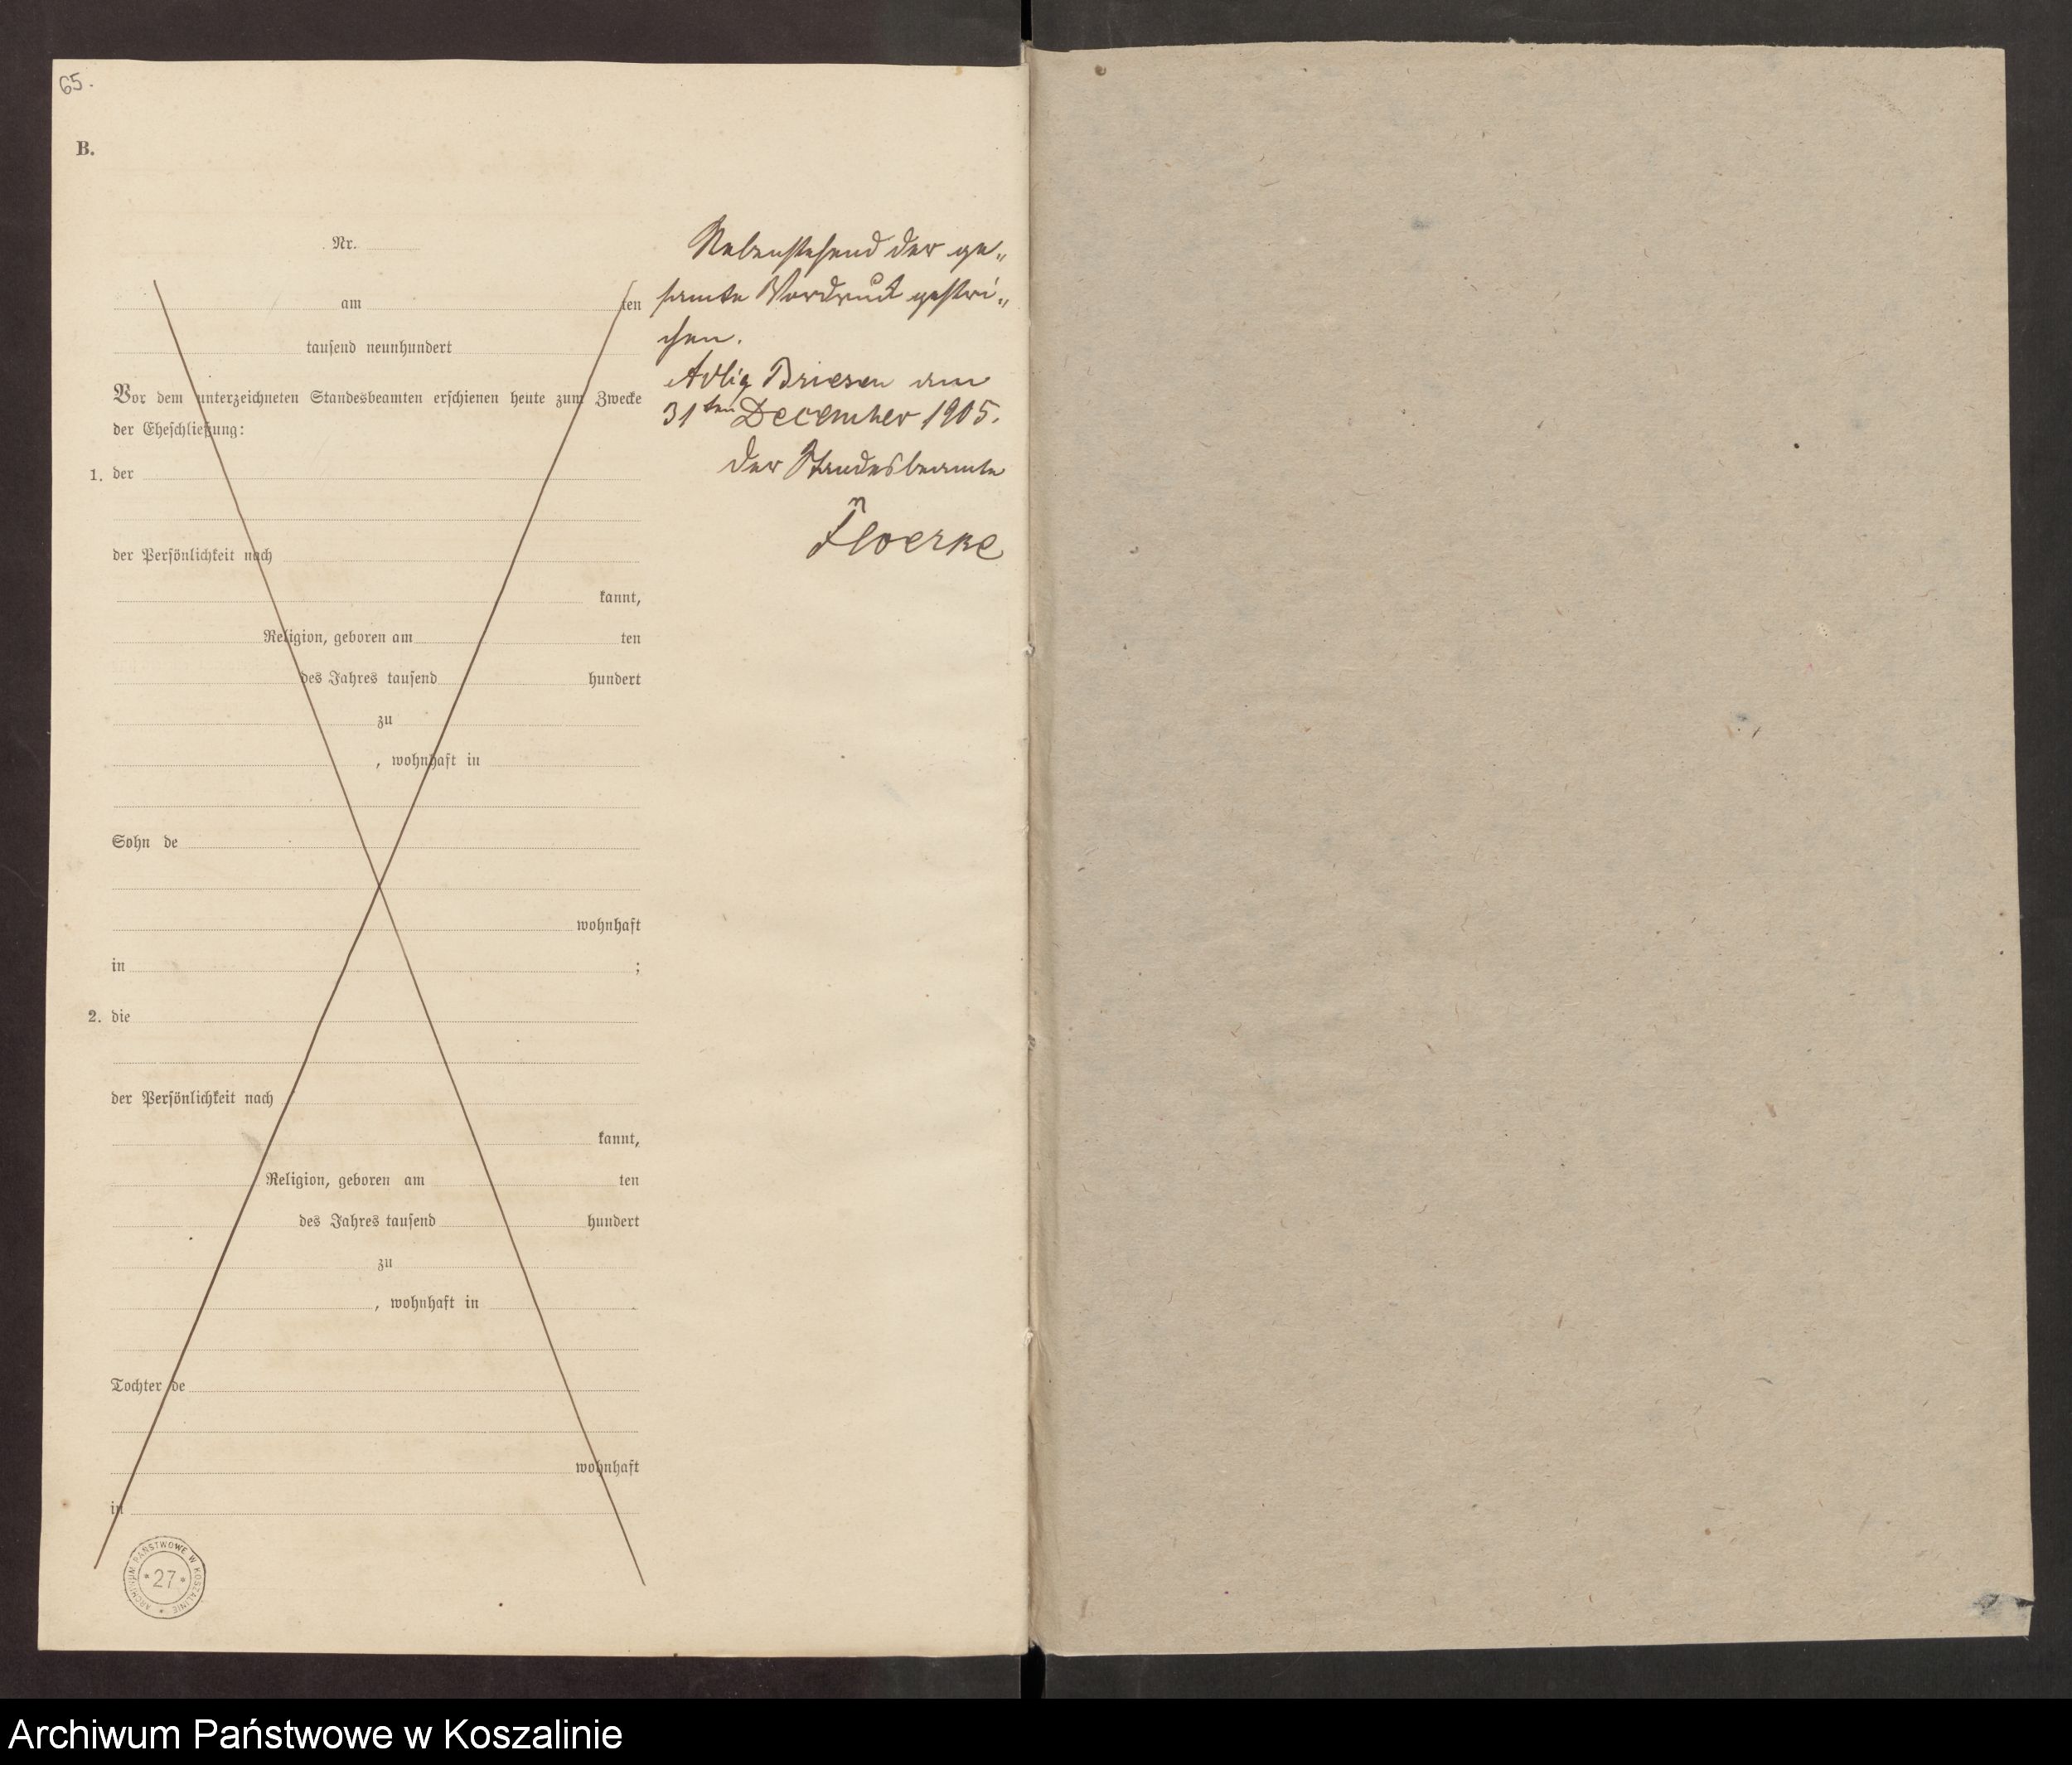 65.
B.
Nr.
am ten
tausend neunhundert
Vor dem unterzeichneten Standesbeamten erschienen heute zum Zwecke
der Eheschließung:
1. der
der Persönlichkeit nach
kannt,
Religion, geboren am ten
des Jahres tausend hundert
zu
, wohnhaft in
Sohn de
wohnhaft
in ;
2. die
der Persönlichkeit nach
kannt,
Religion, geboren am ten
des Jahres tausend hundert
zu
, wohnhaft in
Tochter de
wohnhaft
in
Nebenstehend der ge„
samte Vordruck gestri„
chen.
Adlig Briesen am
31ten December 1905.
Der Standesbeamte
Floerke
ARCHIWUM PAŃSTWOWE W KOSZALINIE
* 27 *
Archiwum Państwowe w Koszalinie